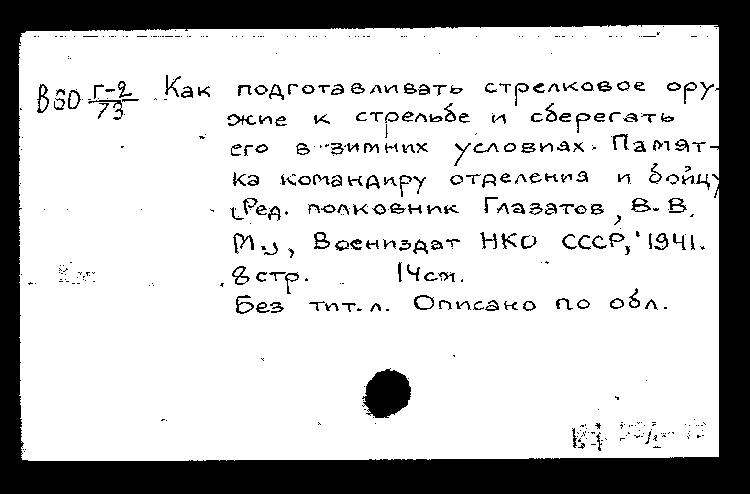 В60 Г-2/73 Как подготавливать стрелковое ору-
жие к стрельбе и сберегать
его в зимних условиях. Памят-
ка командиру отделения и бойцу
Ред. полковник Глазатов, В.В.
М., Воениздат НКО СССР, 1941.
8 стр. 14 см.
Без тит. л. Описано по обл.